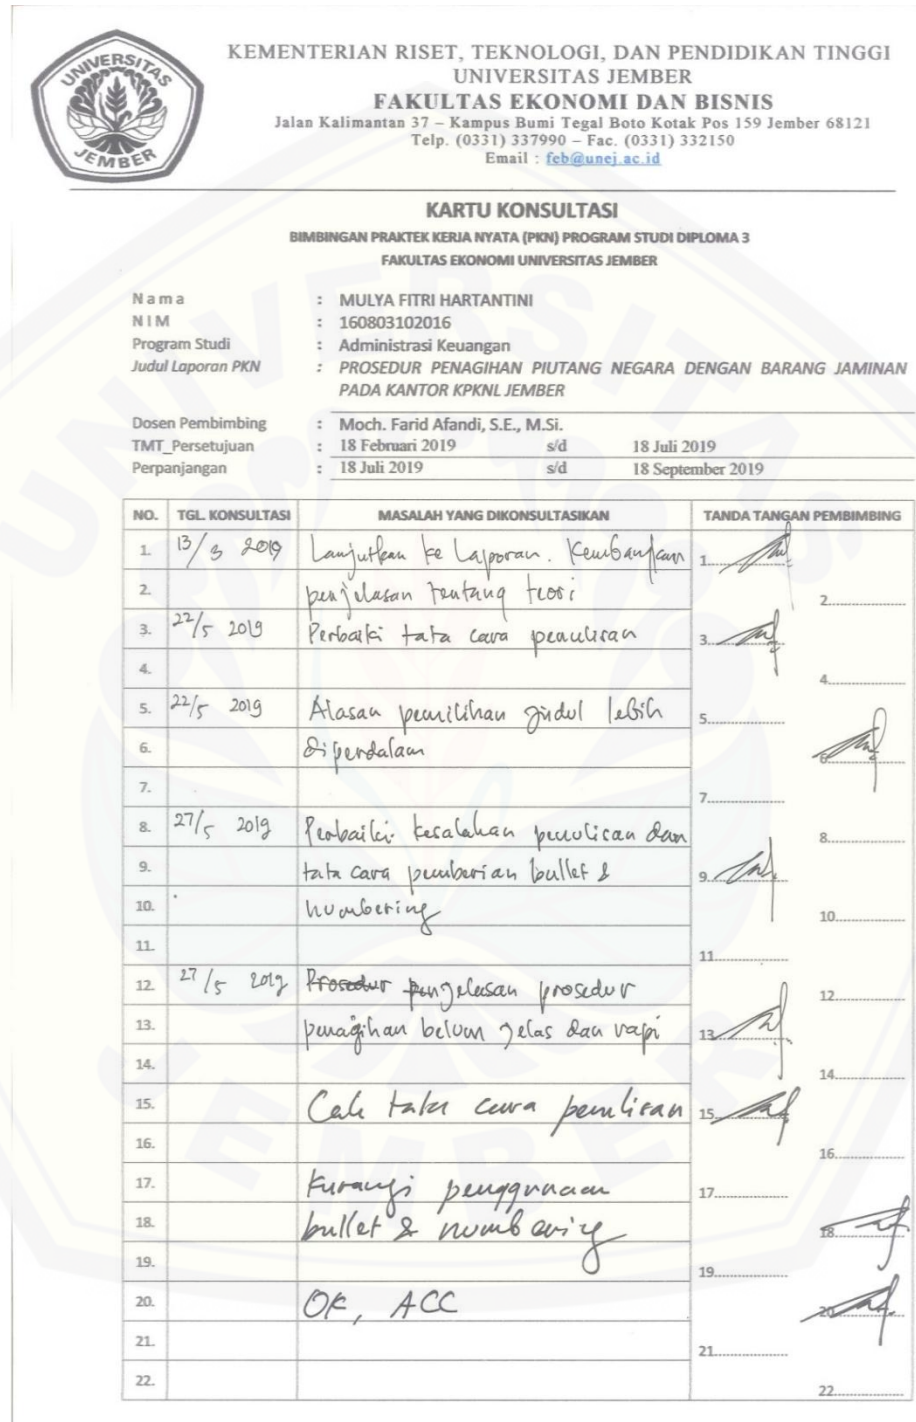 UNIVERSITAS
JEMBER
KEMENTERIAN RISET, TEKNOLOGI, DAN PENDIDIKAN TINGGI
UNIVERSITAS JEMBER
FAKULTAS EKONOMI DAN BISNIS
Jalan Kalimantan 37 – Kampus Bumi Tegal Boto Kotak Pos 159 Jember 68121
Telp. (0331) 337990 – Fac. (0331) 332150
Email : feb@unej.ac.id
KARTU KONSULTASI
BIMBINGAN PRAKTEK KERJA NYATA (PKN) PROGRAM STUDI DIPLOMA 3
FAKULTAS EKONOMI UNIVERSITAS JEMBER
N a m a : MULYA FITRI HARTANTINI
N I M : 160803102016
Program Studi : Administrasi Keuangan
Judul Laporan PKN : PROSEDUR PENAGIHAN PIUTANG NEGARA DENGAN BARANG JAMINAN
PADA KANTOR KPKNL JEMBER
Dosen Pembimbing : Moch. Farid Afandi, S.E., M.Si.
TMT_Persetujuan : 18 Februari 2019 s/d 18 Juli 2019
Perpanjangan : 18 Juli 2019 s/d 18 September 2019
NO. TGL. KONSULTASI MASALAH YANG DIKONSULTASIKAN TANDA TANGAN PEMBIMBING
1. 13/3 2019 Lanjutkan ke Laporan. Kembangkan 1
2. penjelasan tentang teori 2
3. 22/5 2019 Perbaiki tata cara penulisan 3
4. 4
5. 22/5 2019 Alasan pemilihan judul lebih 5
6. diperdalam 6
7. 7
8. 27/5 2019 Perbaiki kesalahan penulisan dan 8
9. tata cara pemberian bullet & 9
10. numbering 10
11. 11
12. 27/5 2019 Prosedur penjelasan prosedur 12
13. penagihan belum jelas dan rapi 13
14. 14
15. Cek tata cara penulisan 15
16. 16
17. Kurangi penggunaan 17
18. bullet & numbering 18
19. 19
20. OK, ACC 20
21. 21
22. 22
UNIVERSITAS
JEMBER